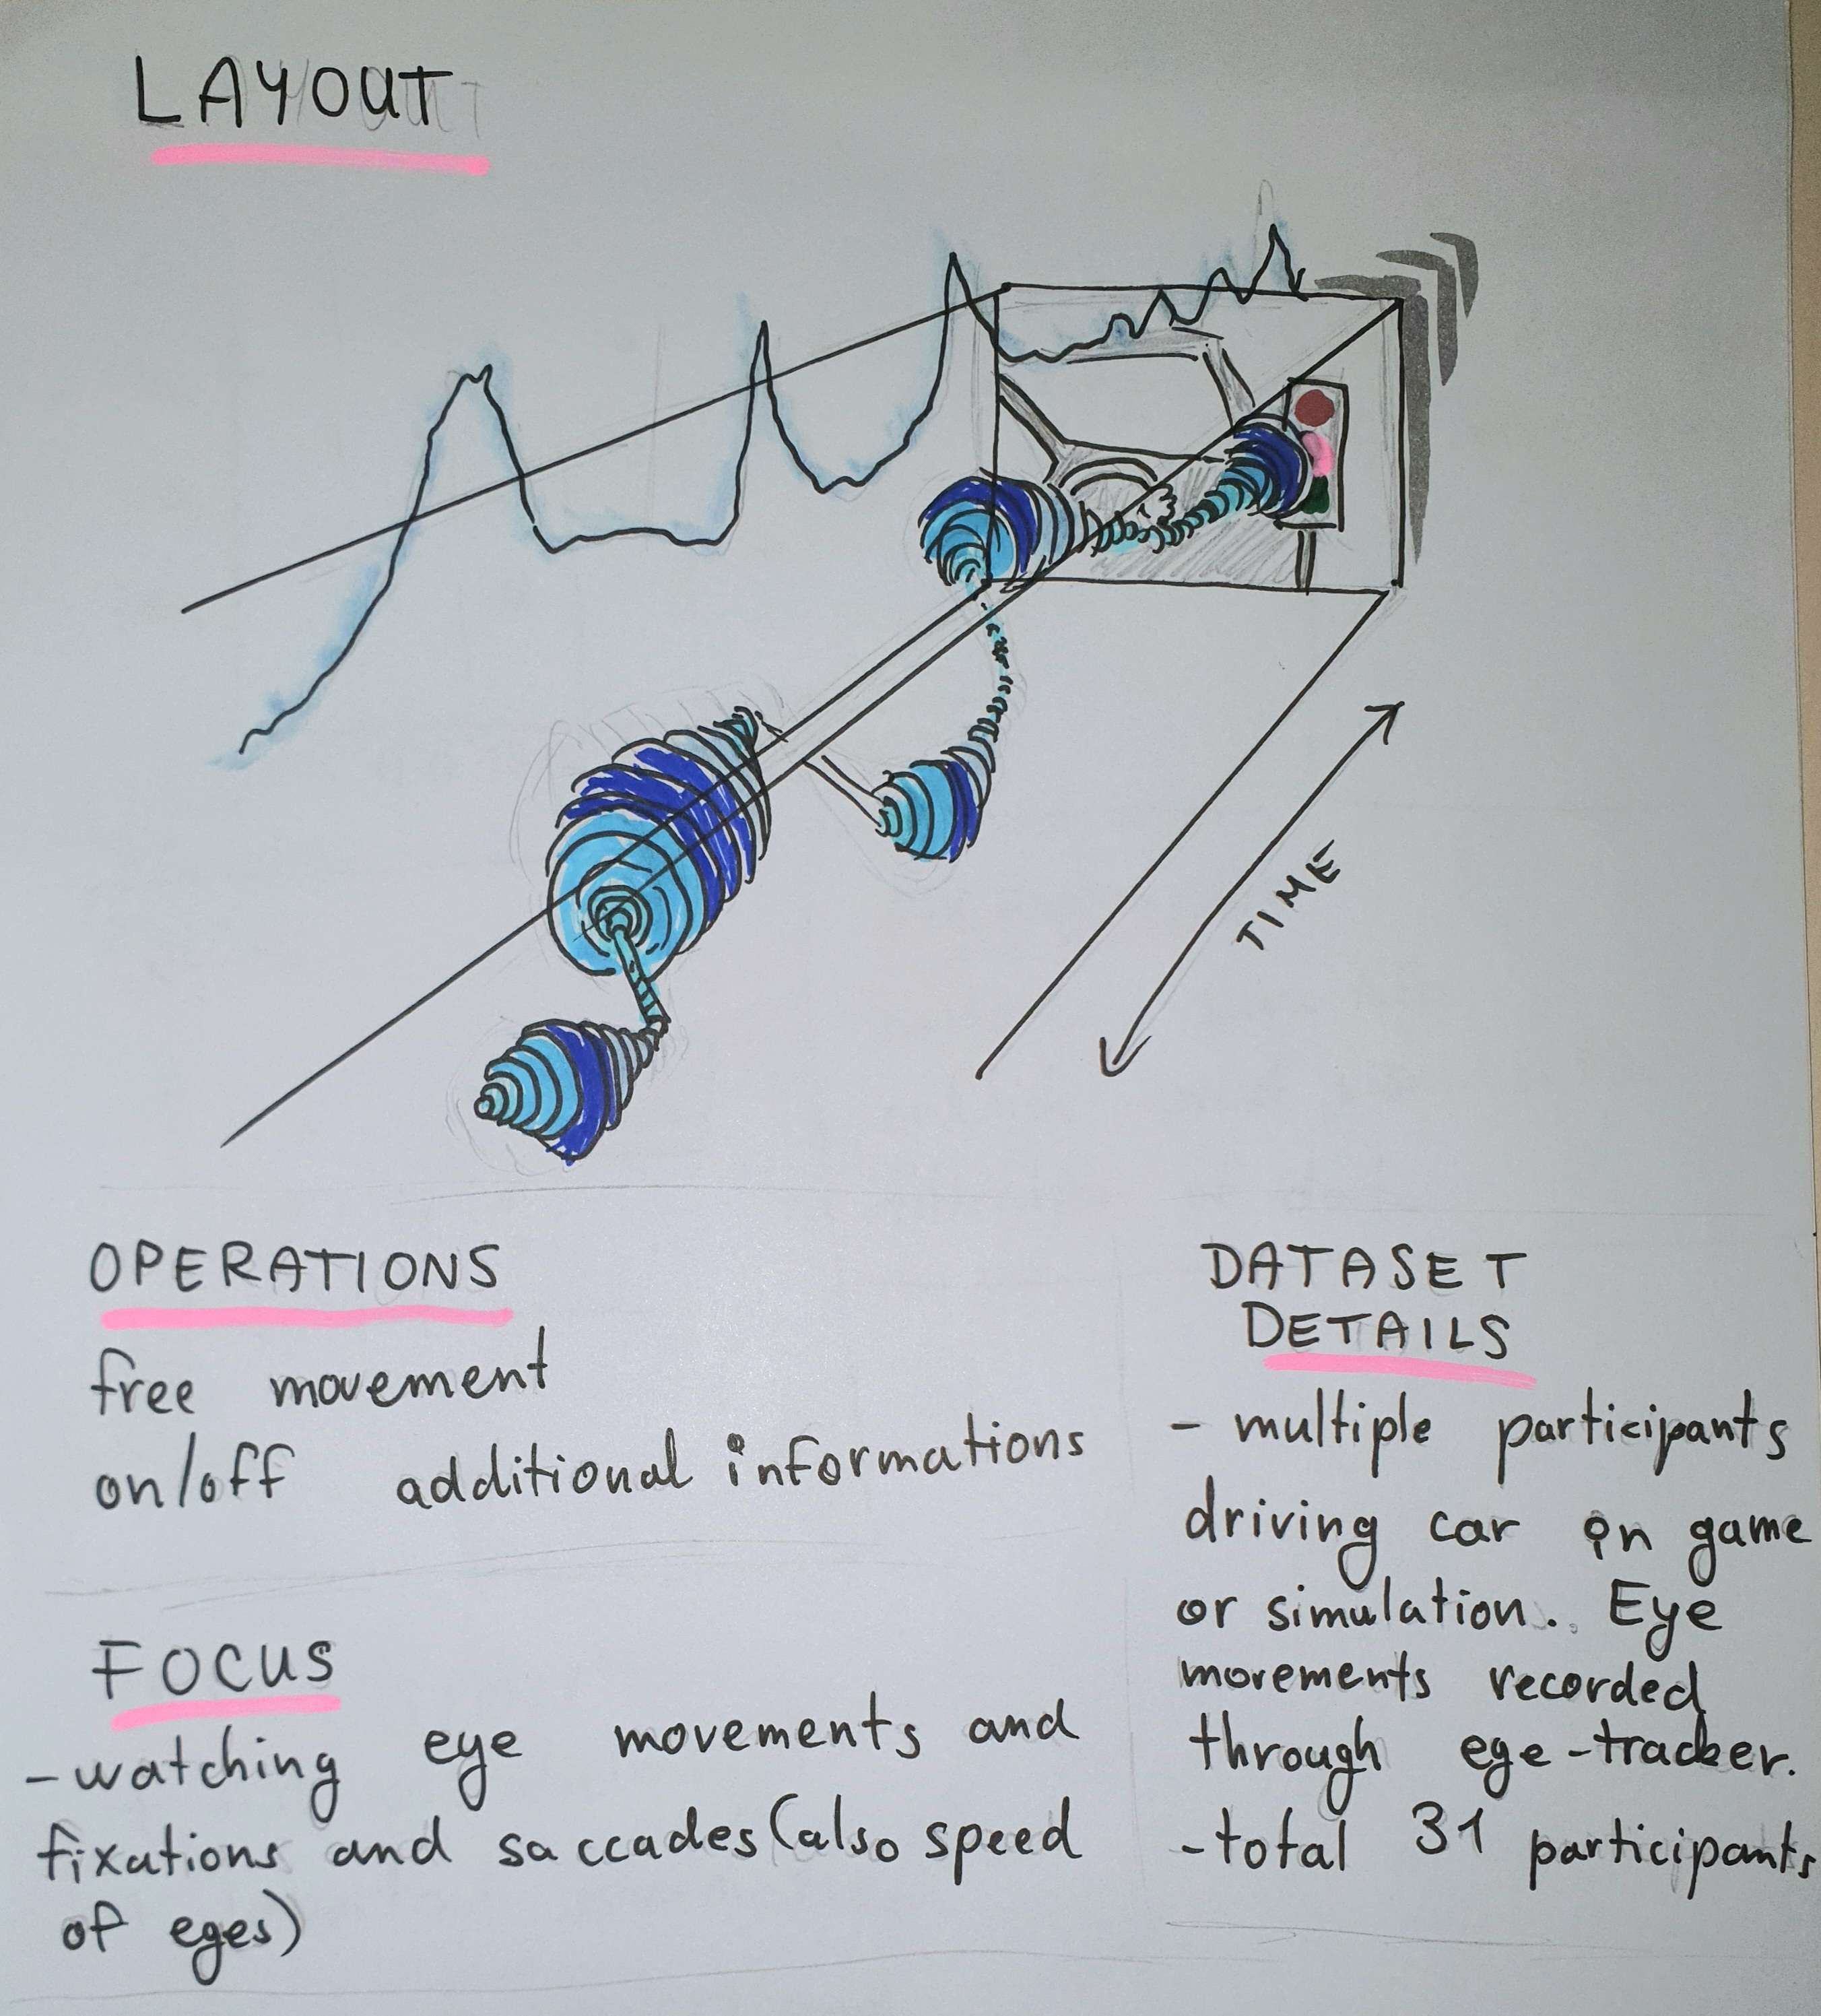 LAYOUT
TIME
OPERATIONS
free movement
on/off additional informations
FOCUS
-watching eye movements and
fixations and saccades (also speed
of eges)
DATASET
DETAILS
- multiple participants
driving car in game
or simulation. Eye
movements recorded
through ege-tracker.
-total 31 participants